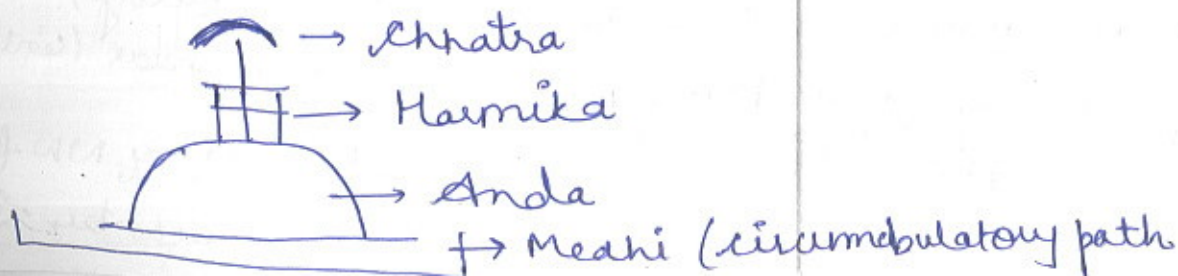 → Chhatra
→ Harmika
→ Anda
→ Medhi (circumnbulatory path